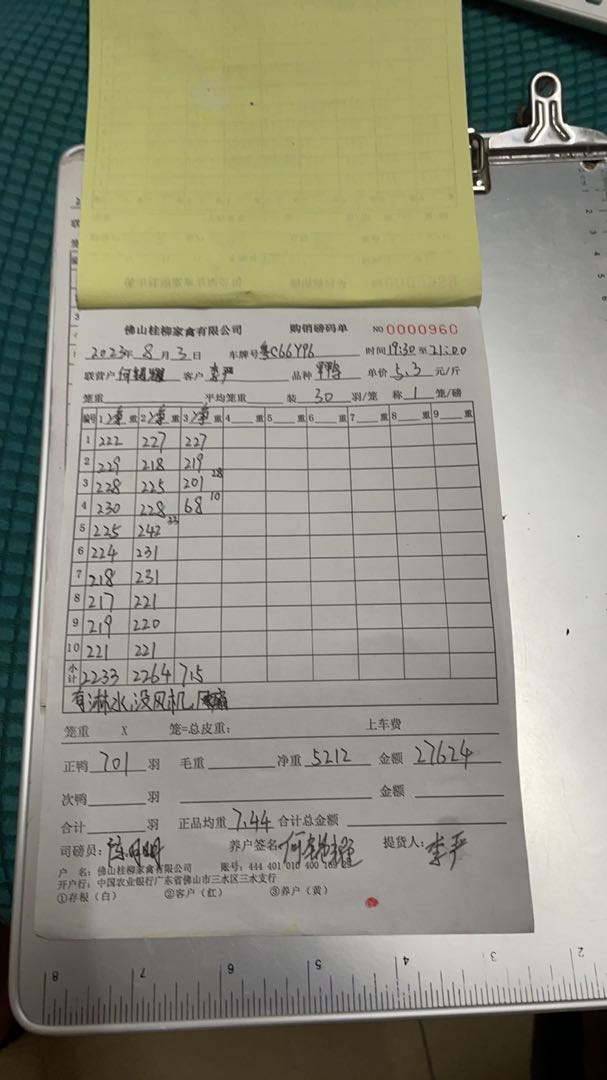 佛山桂柳家禽有限公司 购销磅码单 NO 0000960
2023年 8月 3日 车牌号 粤C66Y96 时间 19:30至21:00
联营户 客户 李严 品种 单价 5.3 元/斤
笼重 平均笼重 装 30 羽/笼 称 1 笼/磅
编号 1 净重 2 净重 3 净重 4 重 5 重 6 重 7 重 8 重 9 重
1 222 227 227
2 229 218 219
3 228 225 201 28
4 230 228 68 10
5 225 242 33
6 224 231
7 218 231
8 217 221
9 219 220
10 221 221
小计 2233 2264 715
有淋水,没风机,
笼重 X 笼=总皮重: 上车费
正鸭 701 羽 毛重 净重 5212 金额 27624
次鸭 羽 金额
合计 羽 正品均重 7.44 合计总金额
司磅员: 养户签名 提货人: 李严
户 名: 佛山桂柳家禽有限公司 账号: 444 401 010 400 169 25
开户行: 中国农业银行广东省佛山市三水区三水支行
①存根(白) ②客户(红) ③养户(黄)